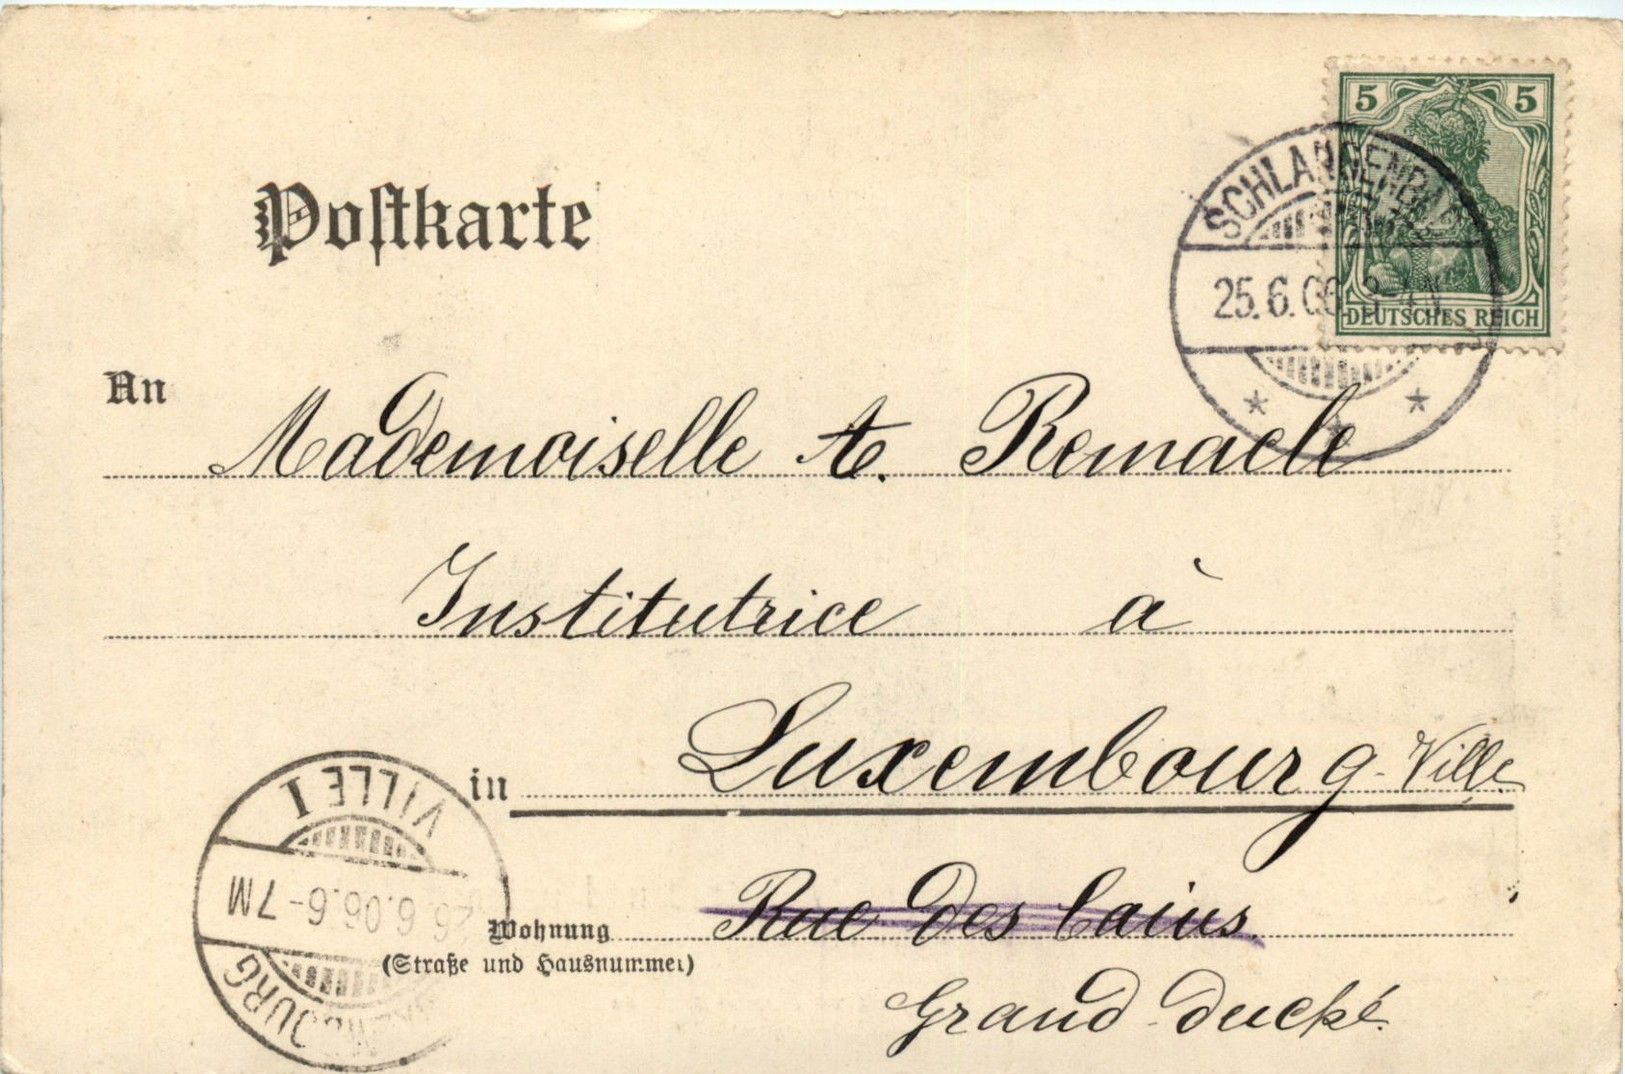 5 5
DEUTSCHES REICH
SCHLANGENBAD
25.6.06. 3-4 N
Postkarte
An
Mademoiselle A. Remacle
Institutrice à
in Luxembourg-Ville
VILLE I
26.6.06.6-7M
LUXEMBOURG
Wohnung Rue des Bains.
(Straße und Hausnummer)
Grand-Duché.